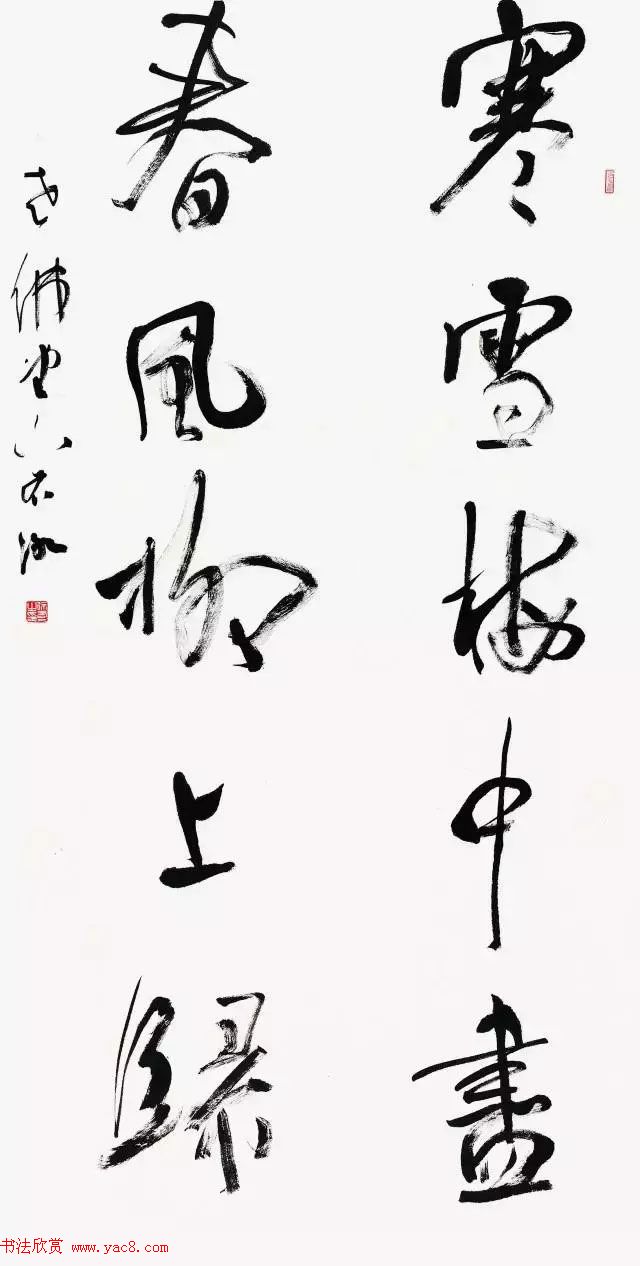 寒雪梅中盡
春風柳上歸
佛堂
书法欣赏 www.yac8.com